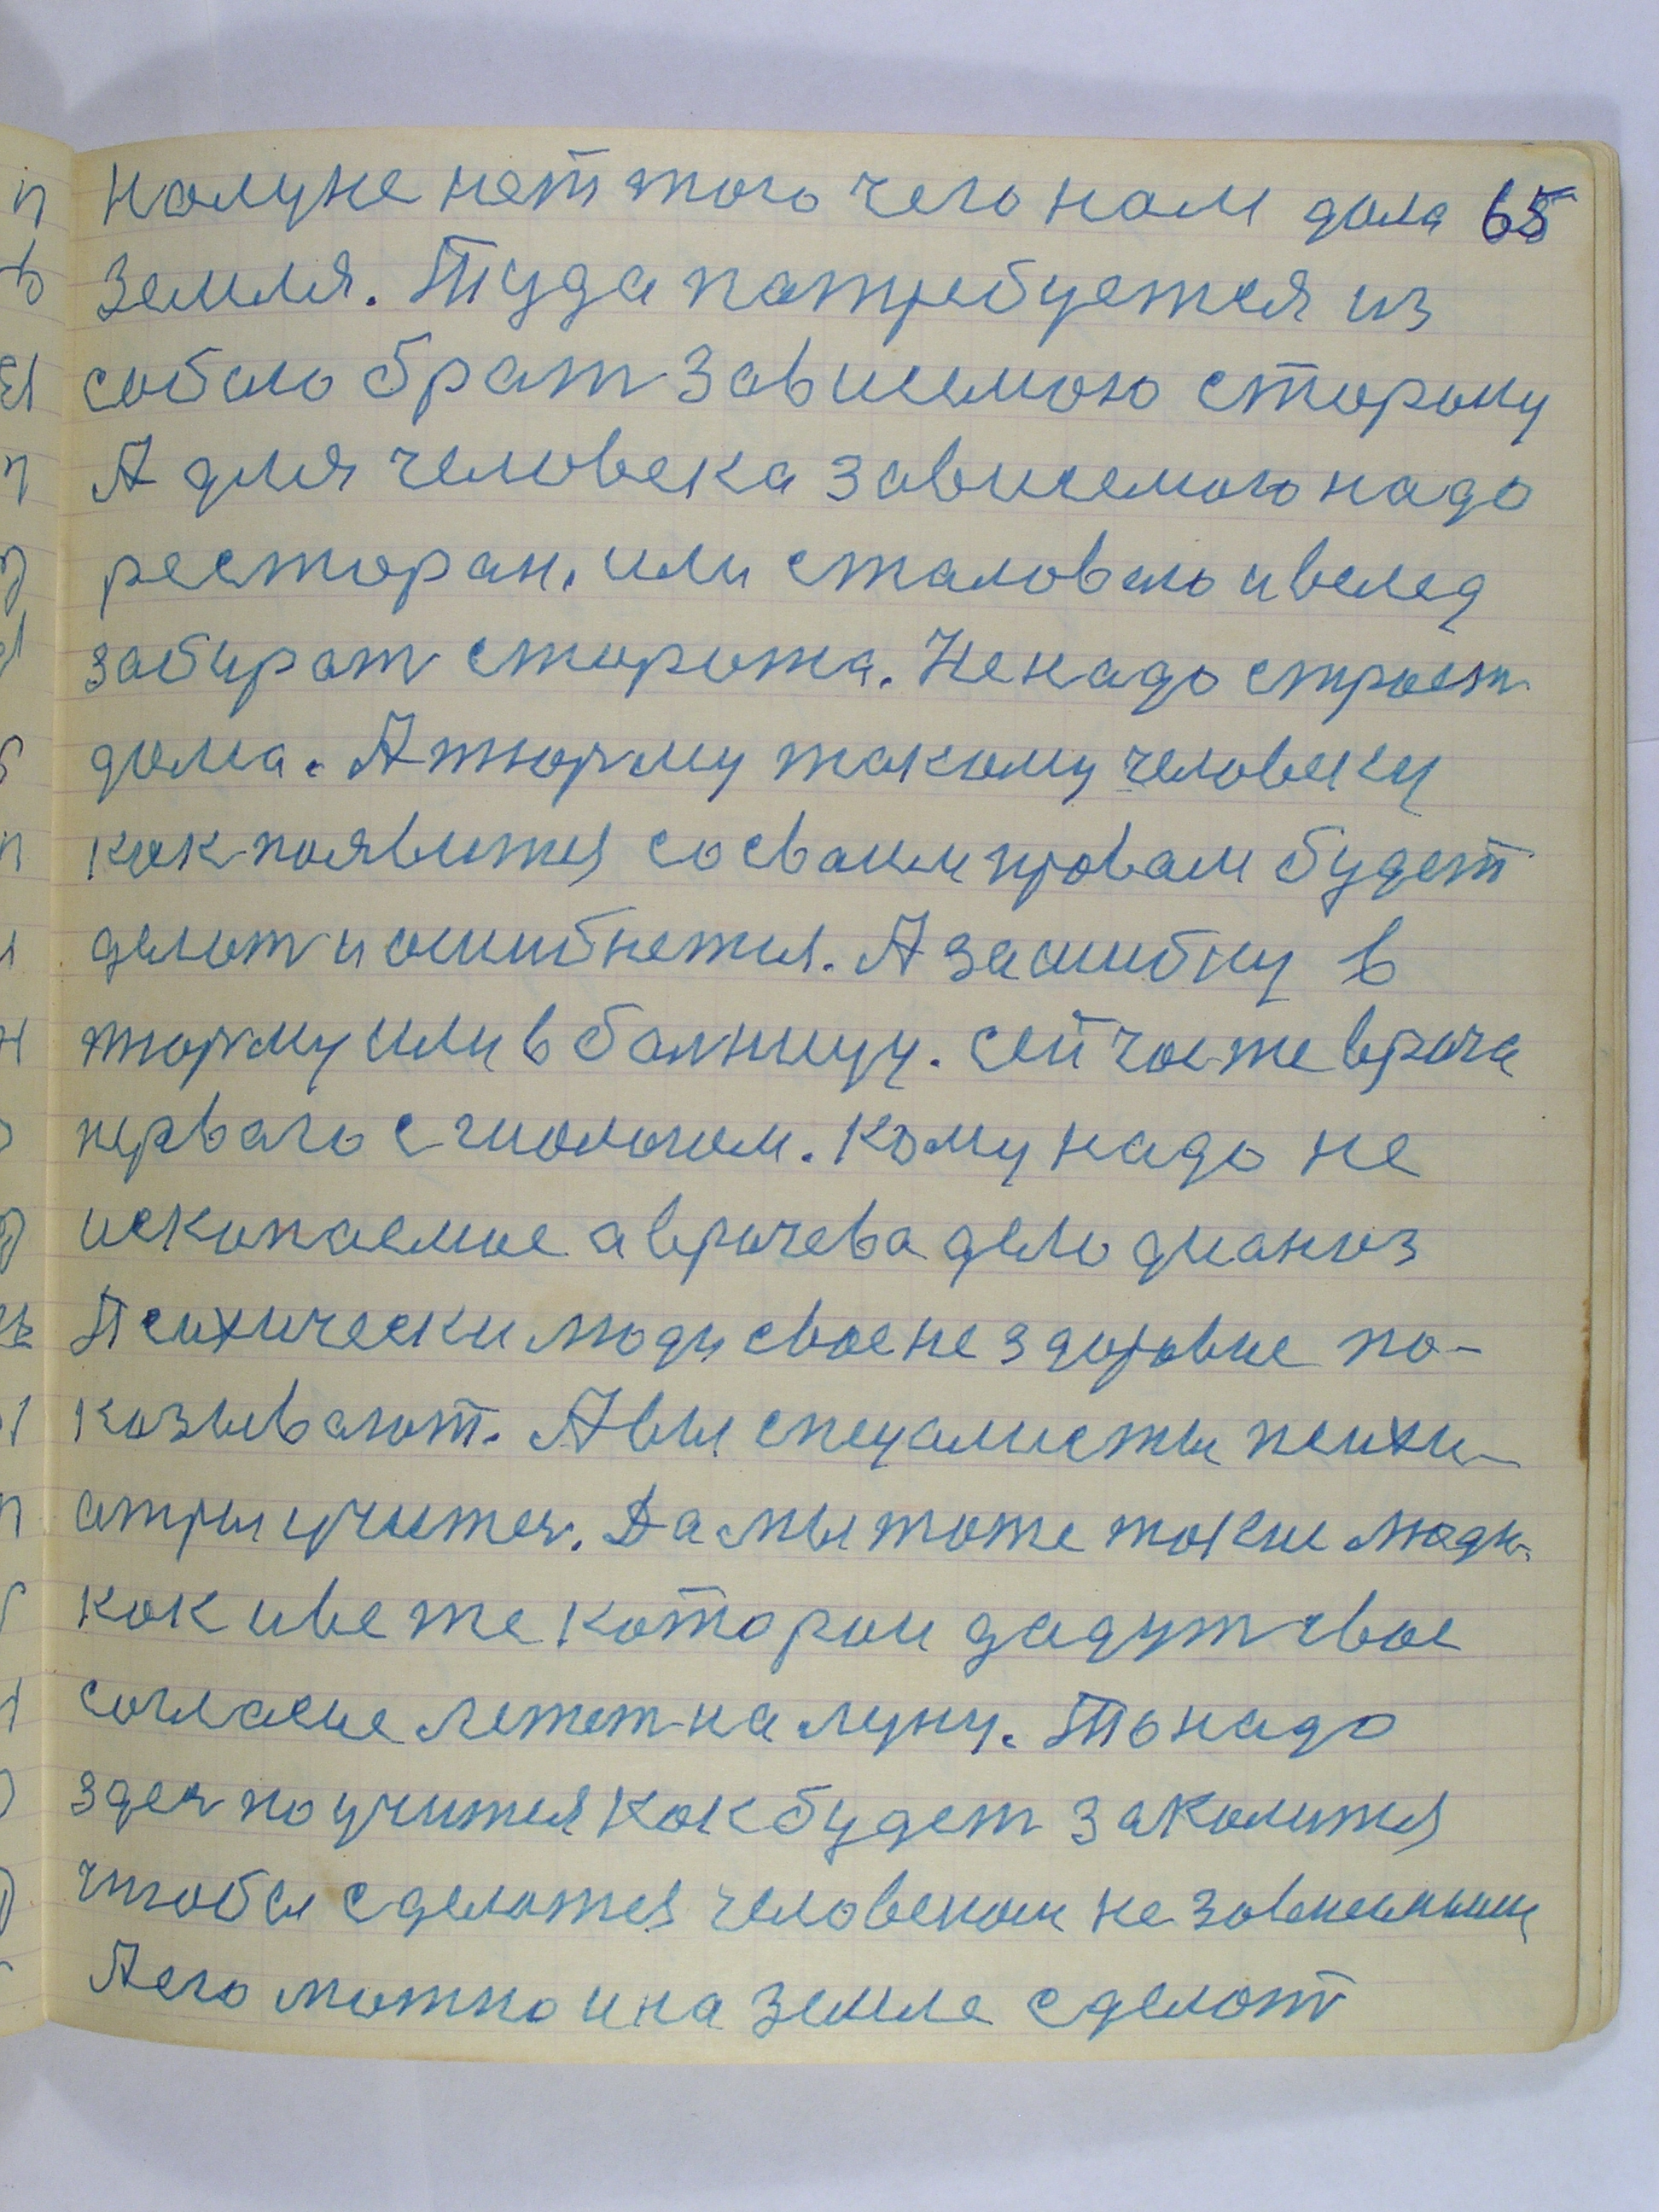 Налуне нет того чего нам дала 65
Земля. Туда патребуется из
собою брат зависемою сторону
А для человека зависемою надо
ресторан. или сталоваю и вслед
забират сторожа. Ненадо строет
дома. А тюрму такому человеку
как появится со сваим правам будет
делат и ошибнется. А за ошибку в
тюрму или в болницу. сейчас же врача
нерваго с гиологом. Кому надо не
ископаемое а врачева дело дианоз
Психически люди свое не здоровие по-
казывают. А вы спецалисты психи-
атры учится. Да мы тоже такие люди
как и все же которои дадут свое
согласие летет на луну. То надо
здес поучится как будет закалится
чтобы сделатся человеком не зависимым
А его можно и на земле сделат